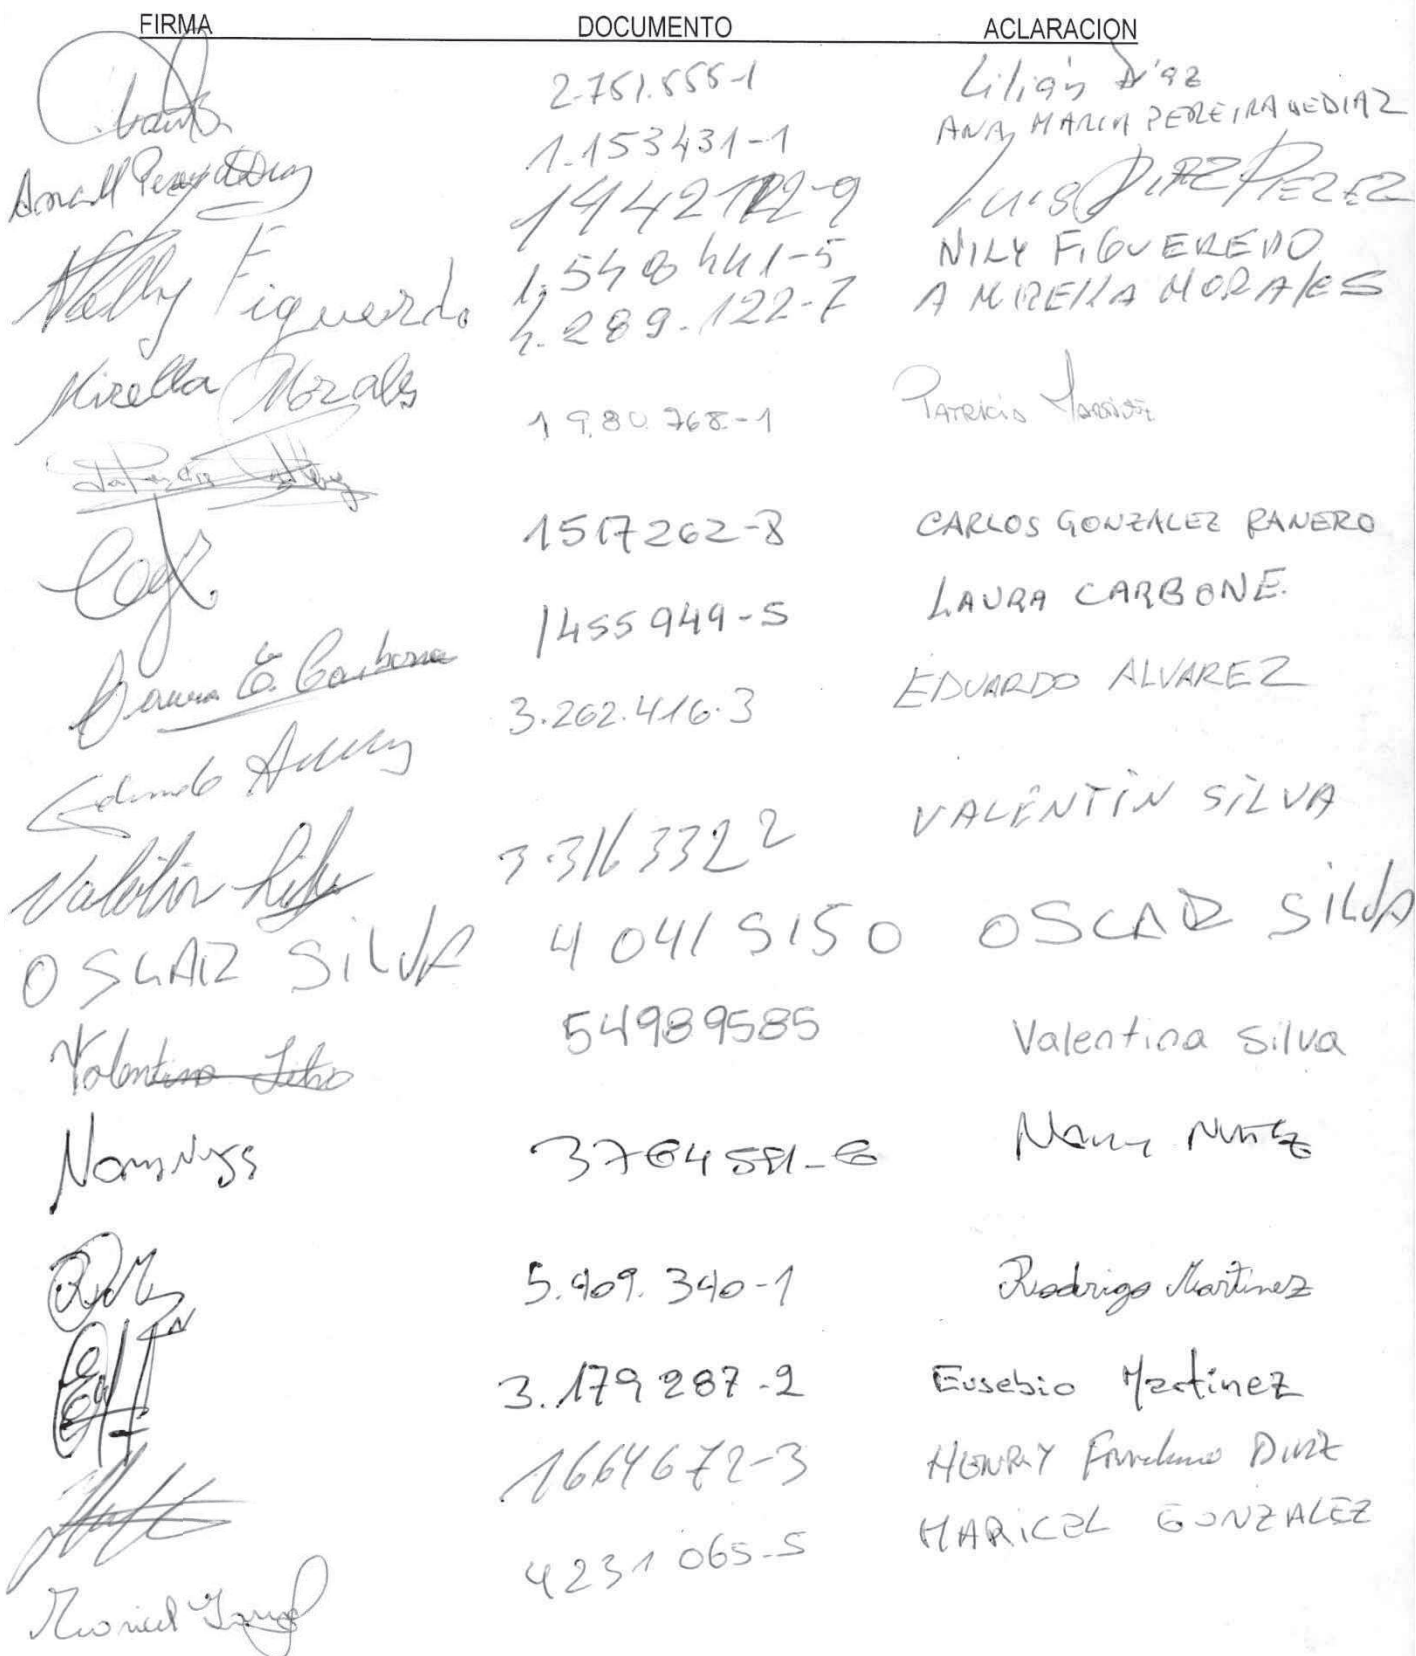 FIRMA DOCUMENTO ACLARACION
2.751.555-1 Lilián Díaz
1.153431-1 ANA MARIA PEREIRA DE DIAZ
1442122-9 LUIS DIAZ PEREZ
Nelly Figueredo 1.548441-5 NILY FIGUEREDO
Mirella Morales 4.289.122-7 A MIRELLA MORALES
1980.768-1 PATRICIA
1517262-8 CARLOS GONZALEZ RANERO
Laura E. Carbone 1455949-5 LAURA CARBONE.
Eduardo 3.262.416.3 EDUARDO ALVAREZ
Valentin Silva 3.3163322 VALENTIN SILVA
OSCAR SILVA 40415150 OSCAR SILVA
Valentina Silva 54989585 Valentina Silva
Nancy 3764591-6 Nancy Nuñez
5.909.390-1 Rodrigo Martinez
3.179287-2 Eusebio Martinez
1664672-3 HENRY DIAZ
Maricel 4231065-5 MARICEL GONZALEZ